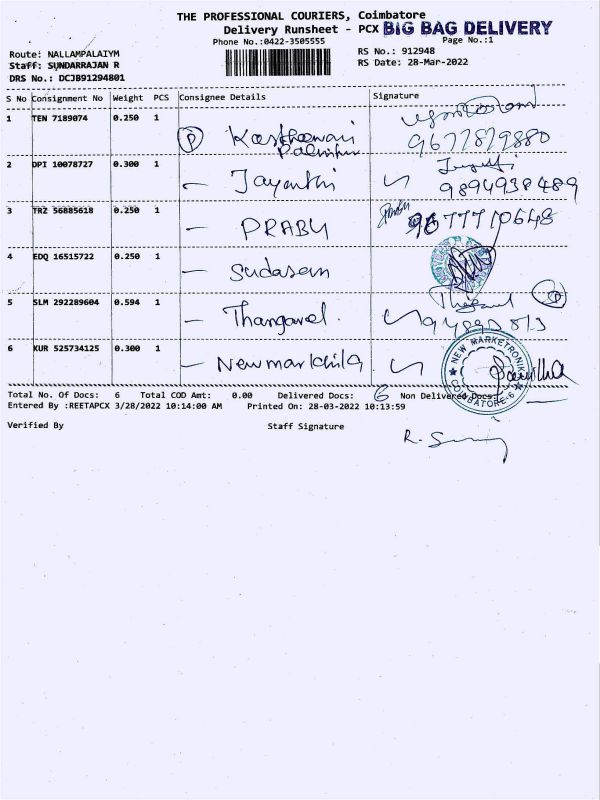 THE PROFESSIONAL COURIERS, Coimbatore
Delivery Runsheet - PCX BIG BAG DELIVERY
Phone No.:0422-3505555
Page No.:1
Route: NALLAMPALAIYM
RS No.: 912948
Staff: SUNDARRAJAN R
RS Date: 28-Mar-2022
DRS No.: DCJB91294801
S No Consignment No Weight PCS Consignee Details Signature
1 TEN 7189074 0.250 1
P
9677879880
2 DPI 10078727 0.300 1
Jayanthi
9894938489
3 TRZ 56885618 0.250 1
PRABU
4 EDQ 16515722 0.250 1
5 SLM 292289604 0.594 1
Thangavel.
6 KUR 525734125 0.300 1
NEW MARKETRONIK
COIMBATORE-6
Total No. Of Docs: 6 Total COD Amt: 0.00 Delivered Docs: 6 Non Delivered Docs:
Entered By :REETAPCX 3/28/2022 10:14:00 AM Printed On: 28-03-2022 10:13:59
Verified By Staff Signature